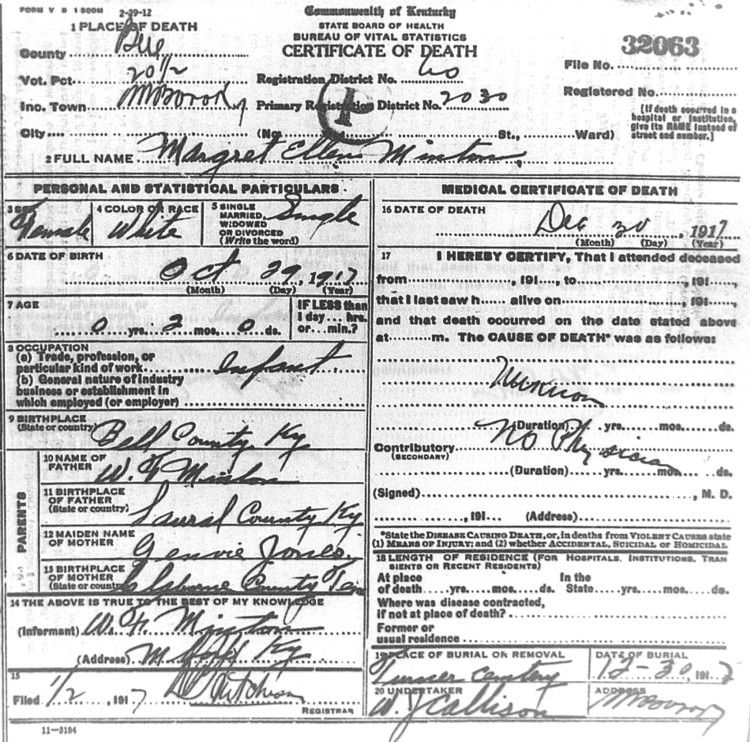 FORM V S 1 500M
2-29-12
Commonwealth of Kentucky
STATE BOARD OF HEALTH
BUREAU OF VITAL STATISTICS
CERTIFICATE OF DEATH
1 PLACE OF DEATH
County Bell
Vot. Pct. 20 1/2
Inc. Town M'BORO Ky
City
Registration District No. 60
Primary Registration District No. 2030
(No. St., Ward)
File No. 32063
Registered No.
[If death occurred in a hospital or institution, give its NAME instead of street and number.]
2 FULL NAME Margret Ellen Minton
PERSONAL AND STATISTICAL PARTICULARS
3 SEX Female
4 COLOR OR RACE White
5 SINGLE MARRIED, WIDOWED OR DIVORCED (Write the word) Single
6 DATE OF BIRTH
Oct 29, 1917
(Month) (Day) (Year)
7 AGE
0 yrs. 2 mos. 0 ds.
IF LESS than 1 day... hrs. or... min.?
8 OCCUPATION
(a) Trade, profession, or particular kind of work Infant
(b) General nature of industry business or establishment in which employed (or employer)
9 BIRTHPLACE (State or country)
Bell County Ky
PARENTS
10 NAME OF FATHER
W. F. Minton
11 BIRTHPLACE OF FATHER (State or country)
Laural County Ky
12 MAIDEN NAME OF MOTHER
Genvie Jones
13 BIRTHPLACE OF MOTHER (State or country)
County Ten
14 THE ABOVE IS TRUE TO THE BEST OF MY KNOWLEDGE
(Informant) W. F. Minton
(Address) Ky
15
Filed 1/2, 1917
REGISTRAR
11-3184
MEDICAL CERTIFICATE OF DEATH
16 DATE OF DEATH
Dec 30, 1917
(Month) (Day) (Year)
17 I HEREBY CERTIFY, That I attended deceased
from, 191, to, 191,
that I last saw h alive on, 191,
and that death occurred on the date stated above
at m. The CAUSE OF DEATH* was as follows:
(Duration) yrs. mos. ds.
Contributory (SECONDARY)
No Physician
(Duration) yrs. mos. ds.
(Signed), M. D.
, 191 (Address)
*State the DISEASE CAUSING DEATH, or, in deaths from VIOLENT CAUSES state (1) MEANS OF INJURY; and (2) whether ACCIDENTAL, SUICIDAL or HOMICIDAL
18 LENGTH OF RESIDENCE (FOR HOSPITALS, INSTITUTIONS, TRANSIENTS OR RECENT RESIDENTS)
At place of death yrs. mos. ds. In the State yrs. mos. ds.
Where was disease contracted, if not at place of death?
Former or usual residence
19 PLACE OF BURIAL OR REMOVAL
Turner
DATE OF BURIAL
12-30, 1917
20 UNDERTAKER
W. J. Callison
ADDRESS
M'BORO Ky